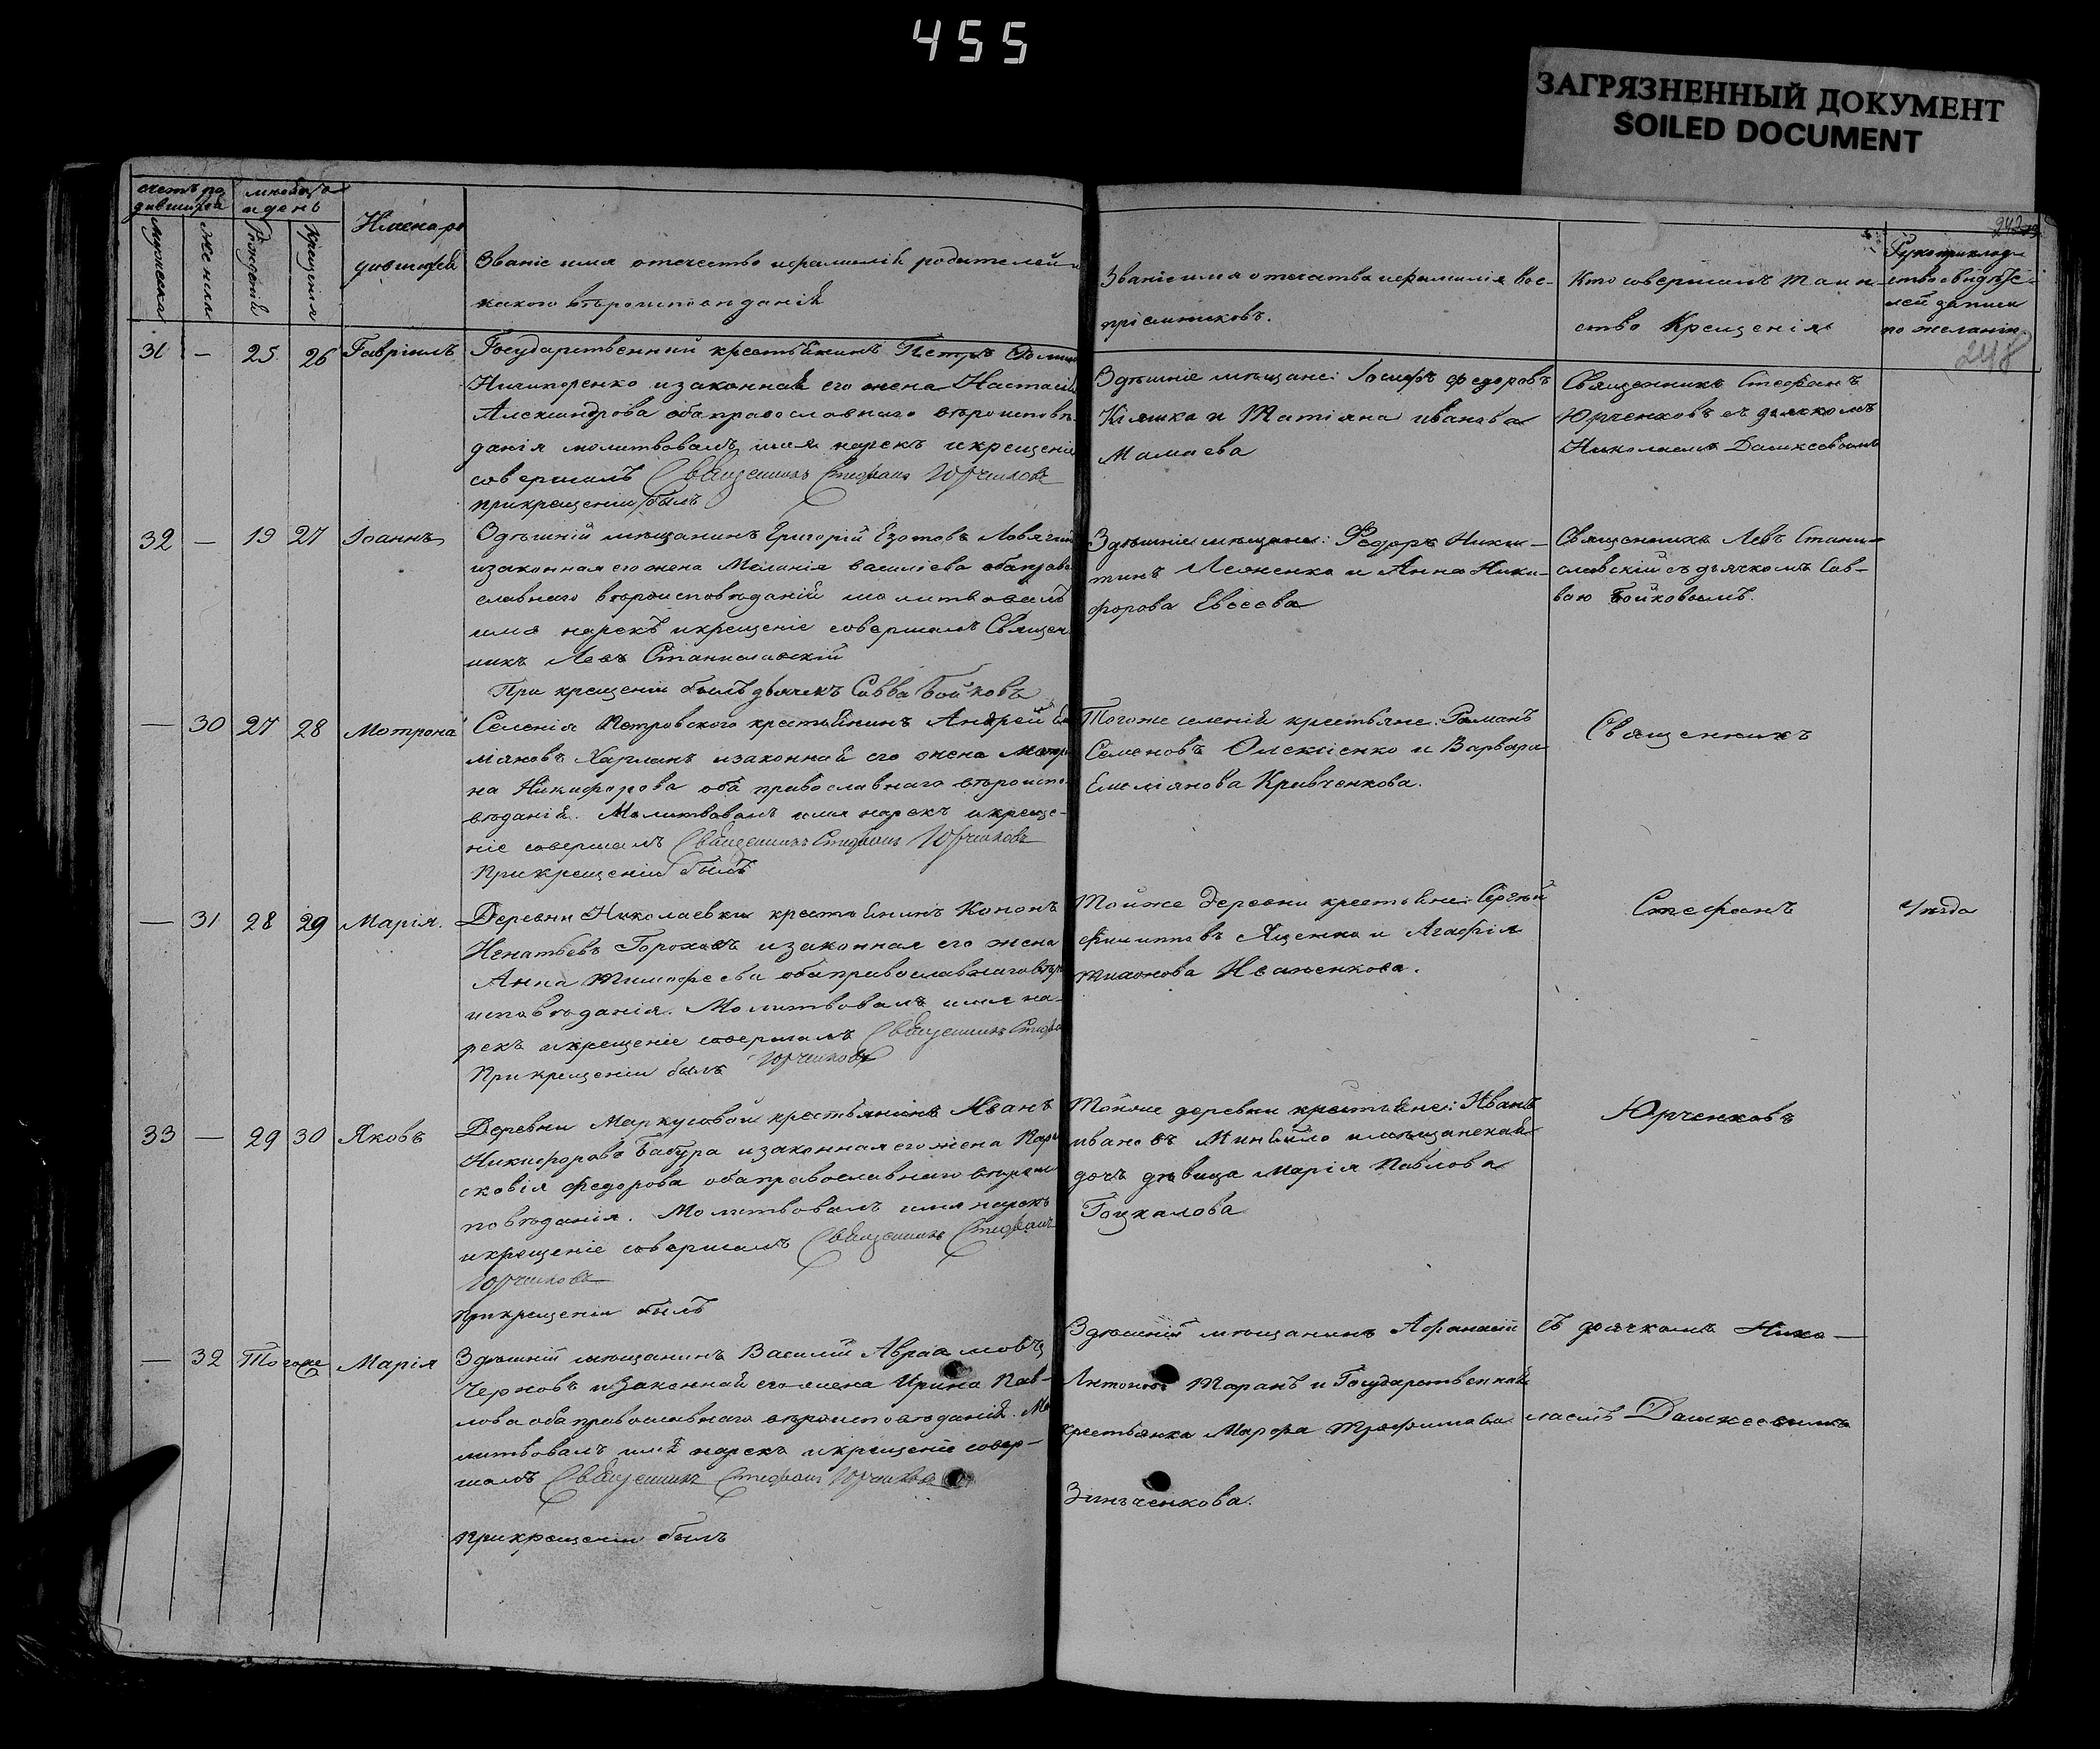 455
ЗАГРЯЗНЕННЫЙ ДОКУМЕНТ
SOILED DOCUMENT
248
счетъ ро
дившихся
мужеска
женска
мѣсяцъ
и день
рожденія
крещенія
Имена ро
дившихся
Званіе имя отечество и фамилія родителей и
какого вѣроисповѣданія
Званіе имя отечества и фамилія Вос-
пріемниковъ.
Кто совершалъ Таин
ство Крещенія
Рукоприклад
ство свидѣте-
лей записи
по желанію
31 — 25 26 Гавріилъ
Государственный крестьянинъ Петръ
Ничипоренко и законная его жена Настасія
Александрова оба православнаго вѣроисповѣ
данія молитвовалъ имя нарекъ и крещеніе
совершалъ Священникъ Стефанъ Юрченковъ
при крещеніи былъ
Здѣшніе мѣщане: Іосифъ Федоровъ
Кіяшка и Татіяна Иванова
Мамаева
Священникъ Стефанъ
Юрченковъ съ дьячкомъ
Николаемъ Дашкевичемъ
32 — 19 27 Іоаннъ
Здѣшній мѣщанинъ Григорій Изотовъ
и законная его жена Меланія Василіева оба право
славнаго вѣроисповѣданій молитвовалъ
имя нарекъ и крещеніе совершалъ Священ
никъ Левъ Станиславскій
При крещеніи былъ дьячекъ Савва Бойковъ
Здѣшніе мѣщане: Федоръ Ники-
тинъ и Анна Ники-
форова Евсеева
Священникъ Левъ Стани-
славскій съ дьячкомъ Сав-
вою Бойковымъ.
— 30 27 28 Мотрона
Селенія Петровского крестьянинъ Андрей Ем
міяновъ Харланъ и законная его жена Мотро
на Никифорова оба православнаго вѣроиспо
вѣданій. Молитвовалъ имя нарекъ и креще-
ніе совершалъ Священникъ Стефанъ Юрченковъ
При крещеніи былъ
Тогоже селеній крестьяне: Романъ
Семеновъ Олексіенко и Варвара
Емеліянова Кривченкова.
Священникъ
— 31 28 29 Марія.
Деревни Николаевки крестьянинъ Кононъ
Игнатьевъ Гороховъ и законная его жена
Анна Тимофеева оба православнаго вѣро
исповѣданія. Молитвовалъ имя на-
рекъ и крещеніе совершалъ Священникъ Стефа
При крещеніи былъ Юрченковъ
Тойже Деревни крестьяне: Сергѣй
Филиповъ Яценко и Агафія
Иваненкова.
Стефанъ
33 — 29 30 Яковъ
Деревни Маркусовой крестьянинъ Иванъ
Никифоровъ Бабура и законная его жена Пара
сковія Федорова оба православнаго вѣроис
повѣданія. Молитвовалъ имя нарекъ
и крещеніе совершалъ Священникъ Стефанъ
Юрченковъ
При крещеніи былъ
Тойже деревни крестьяне: Иванъ
Ивановъ и мѣщанская
дочь дѣвица Марія Павлова
Гоцкалова
Юрченковъ
— 32 Тогоже Марія
Здѣшній мѣщанинъ Василій Авраамовъ
Черновъ и законная его жена Ирина Пав-
лова оба православнаго вѣроисповѣданій. Мо
литвовалъ имя нарекъ и крещеніе совер-
шалъ Священникъ Стефанъ Юрченковъ
При крещеніи былъ
Здѣшній мѣщанинъ Афанасій
Антоновъ Таранъ и Государственная
крестьянка Марфа Трофимова
Зинченкова.
съ дьячкомъ Нико-
лаемъ Дашкевичемъ